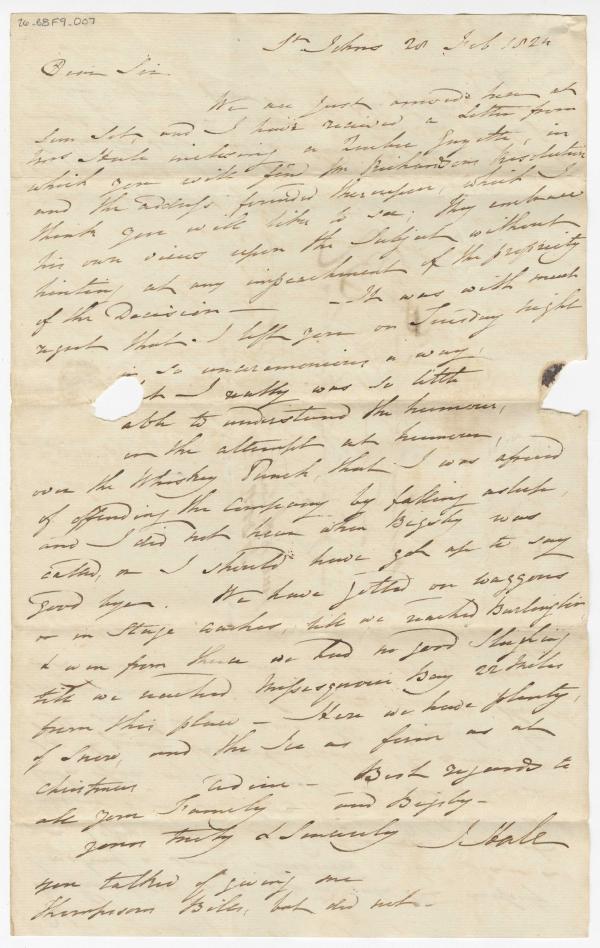 26-68F9-007
St Johns 28 Feb 1824
Dear Sir
We are just arrived here at
Sun Set, and I have received a Letter from
Mrs Hale inclosing a Quebec Gazette, in
which you will find Mr Richardsons Resolution
and the address founded thereupon, which I
think you will like to see; they embrace
his own views upon the Subject without
hinting at any impeachment of the propriety
of the Decision — — It was with much
regret that I left you on Tuesday night
in so unceremonious a way,
I really was so little
able to understand the humour,
or the attempt at humour,
over the Whiskey Punch, that I was afraid
of offending the Company by falling asleep,
and I did not hear when Bigsby was
called, or I should have got up to say
Good bye. We have jolted on waggons
or in Stage coaches, till we reached Burlington
& even from thence we had no good Sleighing
till we reached Missisquoui Bay 22 Miles
from this place — Here we have plenty,
of Snow, and the Ice as firm as at
Christmas Adieu — Best regards to
all your Family — and Bigsby —
yours truly & Sincerely J Hale
you talked of giving me
Thompsons Bills, but did not —